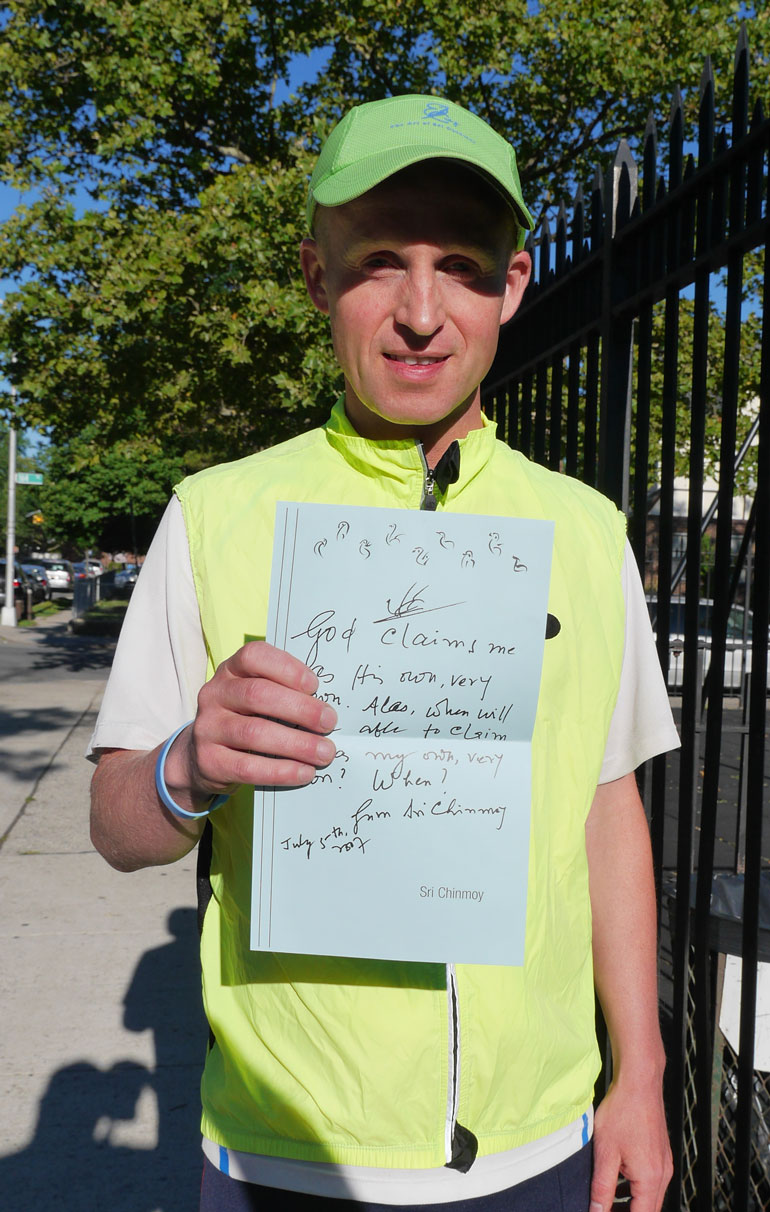 God claims me
as His own, very
own. Alas, when will
able to claim
as my own, very
own? When?
from Sri Chinmoy
July 5th,
2007
Sri Chinmoy